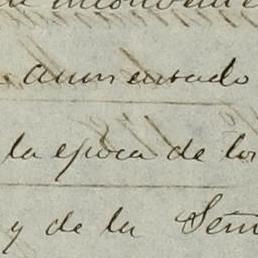 aumentado
la epoca de los
y de la Señ